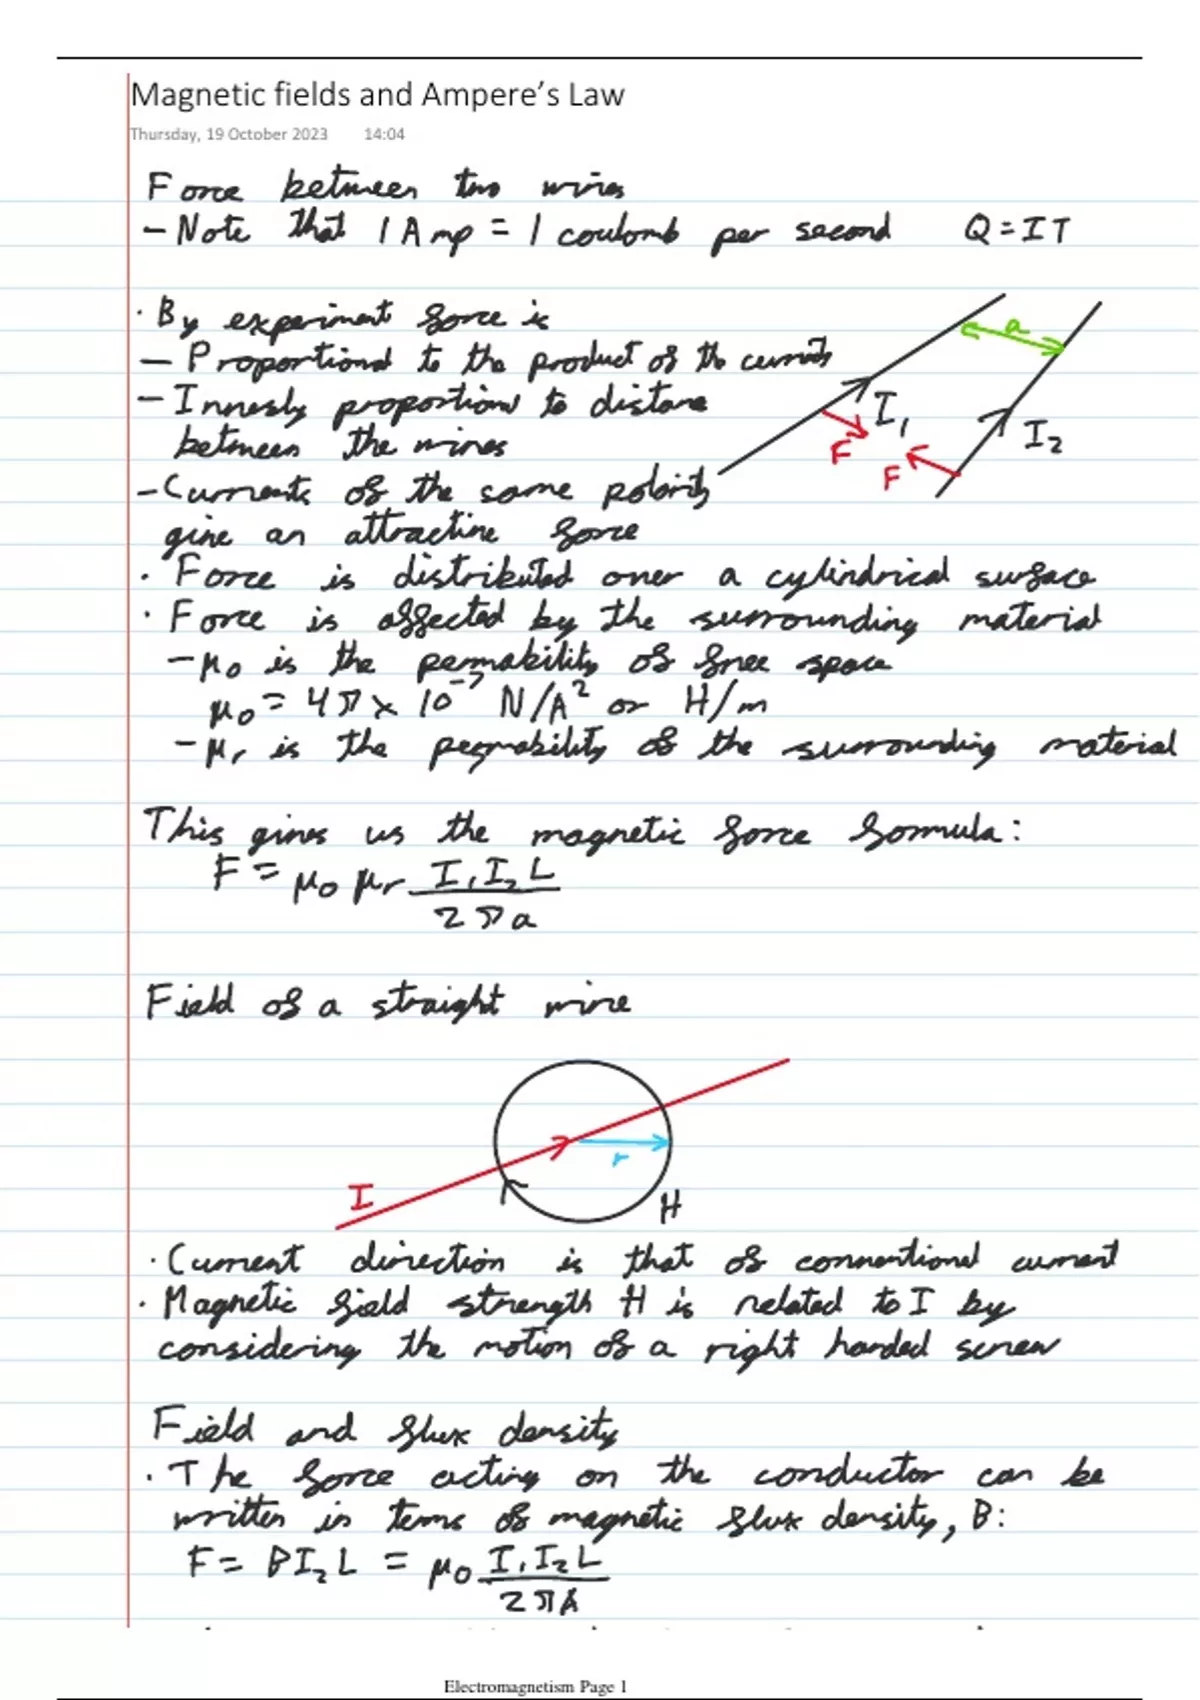 Magnetic fields and Ampere's Law
Thursday, 19 October 2023 14:04
Force between two wires
- Note that 1 Amp = 1 coulomb per second Q = IT
· By experiment force is
- Proportional to the product of the currents
- Inversly proportional to distance
between the wires
- Currents of the same polarity
give an attractive force
a
I₁
I₂
F
F
· Force is distributed over a cylindrical surface
· Force is affected by the surrounding material
- μ₀ is the permability of free space
μ₀ = 4π × 10⁻⁷ N/A² or H/m
- μr is the permability of the surrounding material
This gives us the magnetic force formula:
F = μ₀ μr I₁I₂L / 2πa
Field of a straight wire
I
r
H
· Current direction is that of conventional current
· Magnetic field strength H is related to I by
considering the motion of a right handed screw
Field and flux density
· The force acting on the conductor can be
written in terms of magnetic flux density, B:
F = BI₂L = μ₀ I₁I₂L / 2π
Electromagnetism Page 1